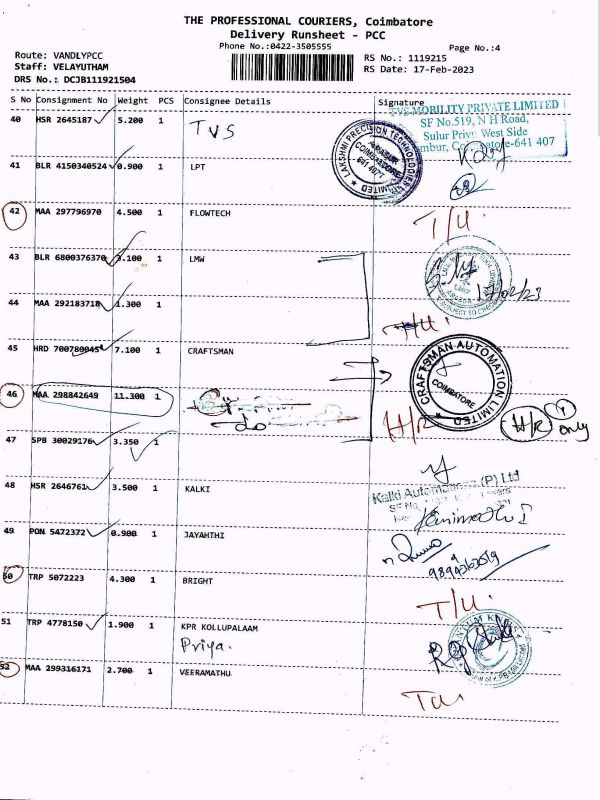 THE PROFESSIONAL COURIERS, Coimbatore
Delivery Runsheet - PCC
Phone No.:0422-3505555
Page No.:4
Route: VANDLYPCC
RS No.: 1119215
Staff: VELAYUTHAM
RS Date: 17-Feb-2023
DRS No.: DCJB111921504
S No Consignment No Weight PCS Consignee Details Signature
TVS MOBILITY PRIVATE LIMITED
SF No.519, N H Road,
Sulur Privu West Side
40 HSR 2645187 5.200 1 TVS
LAKSHMI PRECISION TECHNOLOGIES LIMITED
COIMBATORE
41 BLR 4150340524 0.900 1 LPT
42 MAA 297796970 4.500 1 FLOWTECH T/U.
43 BLR 6800376370 3.100 1 LMW
17/02/23
44 MAA 292183718 1.300 1
45 HRD 700780045 7.100 1 CRAFTSMAN
CRAFTSMAN AUTOMATION LIMITED
COIMBATORE
46 MAA 298842649 11.300 1 do H/R
H/R only
47 SPB 30029176 3.350 1
48 HSR 2646761 3.500 1 KALKI
49 PON 5472372 0.900 1 JAYAHTHI
50 TRP 5072223 4.300 1 BRIGHT T/U.
51 TRP 4778150 1.900 1 KPR KOLLUPALAAM
Priya.
52 MAA 299316171 2.700 1 VEERAMATHU